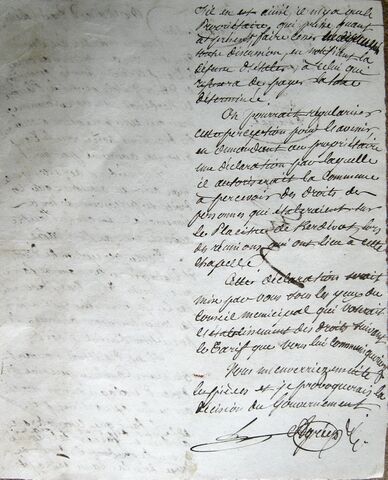 S'il en est ainsi, il n'y a que le
Propriétaire, qui puisse quant
à présent faire
toute discussion en notifiant la
défense d'étaler, à celui qui
refusera de payer la taxe
déterminée.
On pourrait régulariser
cette perception pour l'avenir,
en demandant au propriétaire
une déclaration par laquelle
il autoriserait la Commune
à percevoir des droits des
personnes qui étaleraient sur
le Placitre de Kerdévot, lors
des réunions qui ont lieu à cette
chapelle.
Cette déclaration serait
mise par vous sous les yeux du
Conseil municipal qui voterait
l'établissement des droits suivant
le Tarif que vous lui communiqueriez
Vous m'enverriez ensuite
les pièces et je provoquerais la
décision du Gouvernement